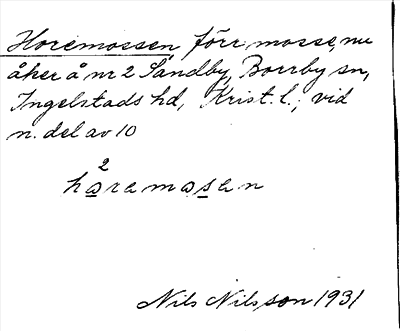 Horemossen, förr mosse, nu
åker å nr 2 Sandby, Borrby sn,
Ingelstads hd, Krist. l.; vid
n. del av 10
2
håremosen
Nils Nilsson 1931